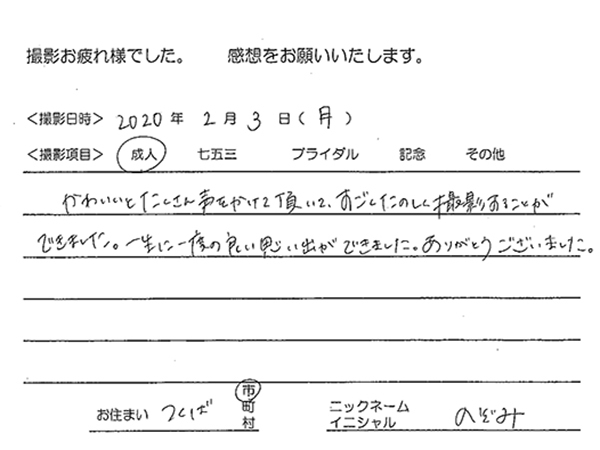 撮影お疲れ様でした。 感想をお願いいたします。
<撮影日時> 2020年 2月 3日(月)
<撮影項目> 成人 七五三 ブライダル 記念 その他
かわいいとたくさん声をかけて頂いて、すごくたのしく撮影することが
できました。一生に一度の良い思い出ができました。ありがとうございました。
お住まい つくば 市町村 ニックネーム イニシャル のぞみ